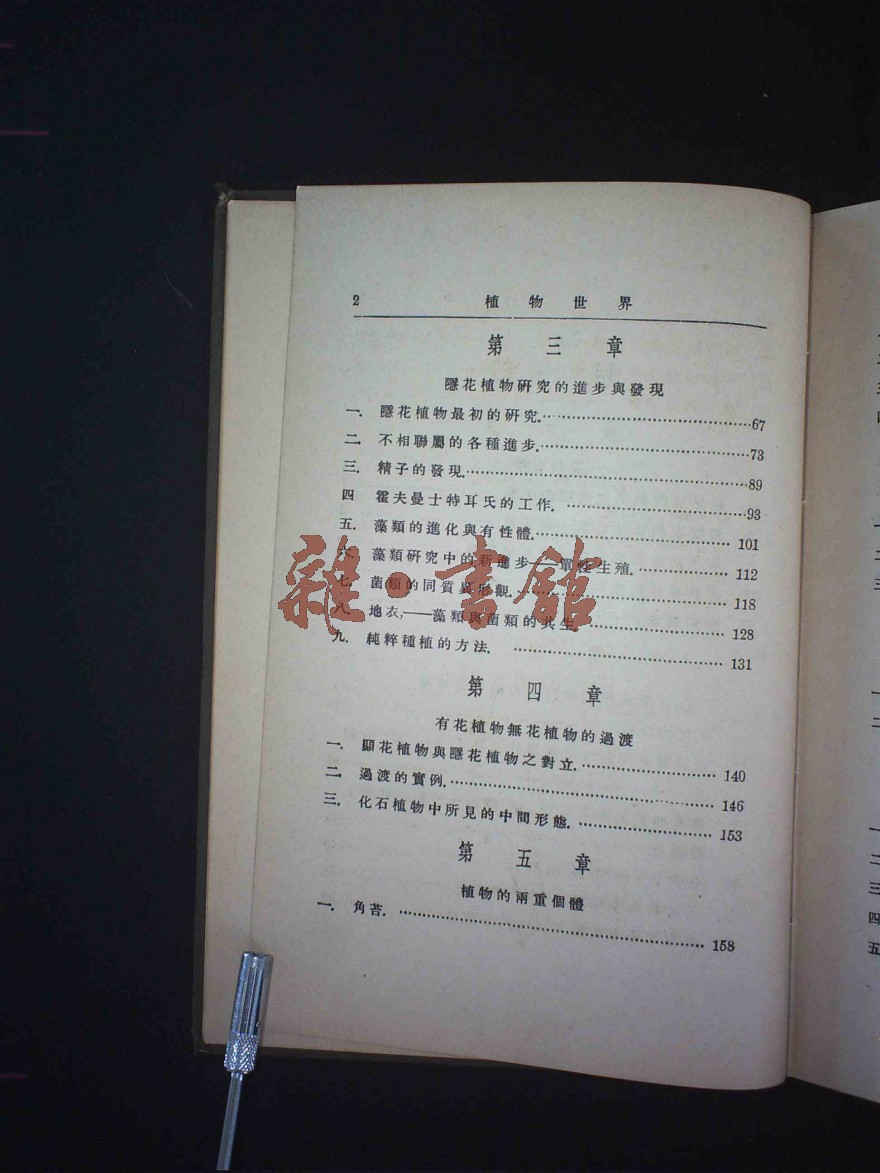 2 植物世界
第三章
隱花植物研究的進步與發現
一. 隱花植物最初的研究.……67
二. 不相聯屬的各種進步.……73
三. 精子的發現.……89
四 霍夫曼士特耳氏的工作.……93
五. 藻類的進化與有性體.……101
六. 藻類研究中的新進步——單性生殖.……112
七. 菌類的同質異形觀.……118
八. 地衣,——藻類與菌類的共生.……128
九. 純粹種植的方法.……131
第四章
有花植物無花植物的過渡
一. 顯花植物與隱花植物之對立.……140
二. 過渡的實例.……146
三. 化石植物中所見的中間形態.……153
第五章
植物的兩重個體
一. 角苔.……158
雜·書館
一
二
三
一
二
一
二
三
四
五